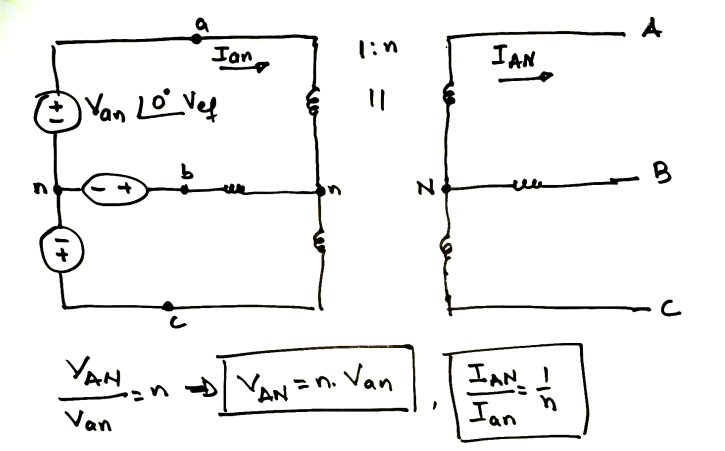 a
Ian
1:n
IAN
A
+
−
Van ∠0° Vef
||
n
− +
b
n
N
B
−
+
c
C
VAN/Van = n ⇒ VAN = n. Van , IAN/Ian = 1/n